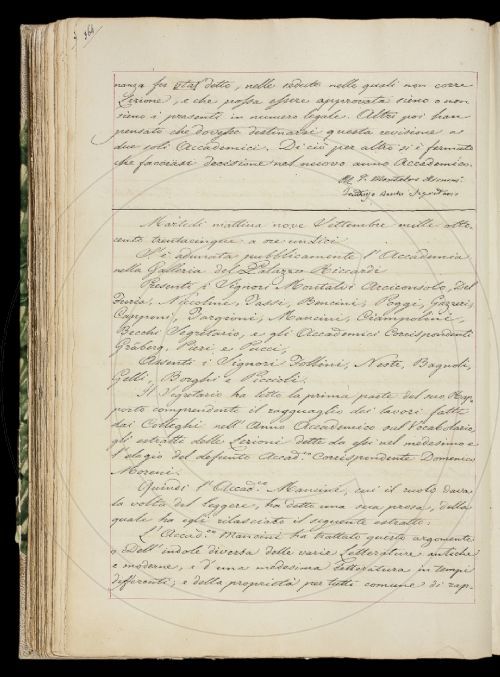 364
nanza per detto, nelle sedute nelle quali non corre
Lezione, e che possa essere approvata sieno o non
sieno i presenti in numero legale. Altri poi han
pensato che dovesse destinarsi questa revisione a
due soli Accademici. Di ciò per altro si è fermato
che facciasi decisione nel nuovo anno Accademico.
Segretario
Martedì mattina nove Settembre mille otto
cento trentacinque a ore undici
S'è adunata pubblicamente l'Accademia
nella Galleria del Palazzo Riccardi
Presenti i Signori Montalvi Arciconsolo, Del
Furia, Niccolini, Tassi, Bencini, Poggi, Gazzeri,
Capponi, Targioni, Mancini, Ciampolini,
Becchi Segretario, e gli Accademici Corrispondenti
Gråberg, Pieri e Pucci,
Assenti i Signori Follini, Nesti, Bagnoli,
Gelli, Borghi e Piccioli.
Il Segretario ha letto la prima parte del suo Rap-
porto comprendente il ragguaglio dei lavori fatti
dai Colleghi nell'Anno Accademico sul Vocabolario,
gli estratti delle Lezioni dette da essi nel medesimo e
l'elogio del defunto Accad.co Corrispondente Domenico
Moreni.
Quindi l'Accad.co Mancini, cui il ruolo dava
la volta del leggere, ha detto una sua prosa, della
quale ha egli rilasciato il seguente estratto.
L'Accad.co Mancini ha trattato questo argomento
o dell'indole diversa delle varie Letterature antiche
e moderne, e d'una medesima Letteratura in tempi
differenti; e della proprietà per tutti comune di rap-